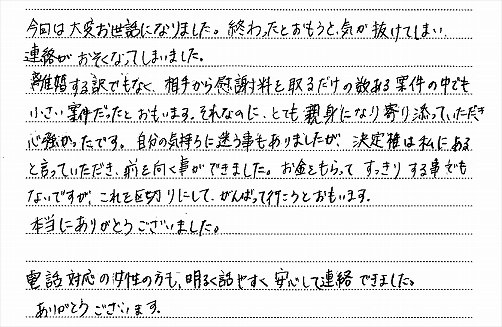 今回は大変お世話になりました。終わったとおもうと、気が抜けてしまい、
連絡がおそくなってしまいました。
離婚する訳でもなく、相手から慰謝料を取るだけの数ある案件の中でも
小さい案件だったとおもいます。それなのに、とても親身になり寄り添っていただき
心強かったです。自分の気持ちに迷う事もありましたが、決定権は私にある
と言っていただき、前を向く事ができました。お金をもらってすっきりする事でも
ないですが、これを区切りにして、がんばって行こうとおもいます。
本当にありがとうございました。
電話対応の女性の方も、明るく話やすく安心して連絡できました。
ありがとうございます。